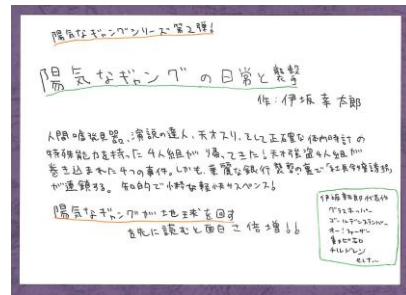 陽気なギャングシリーズ第2弾!
陽気なギャングの日常と襲撃
作:伊坂幸太郎
人間嘘発見器、演説の達人、天才スリ、そして正確な体内時計の
特殊能力を持った4人組が帰ってきた!天才強盗4人組が
巻き込まれた4つの事件。しかも、華麗な銀行襲撃の裏で「社長令嬢誘拐」
が連鎖する。知的で小粋な軽快サスペンス!
陽気なギャングが地球を回す
を先に読むと面白さ倍増!!
伊坂幸太郎代表作
グラスホッパー
ゴールデンスランバー
オー!ファーザー
重力ピエロ
チルドレン
など